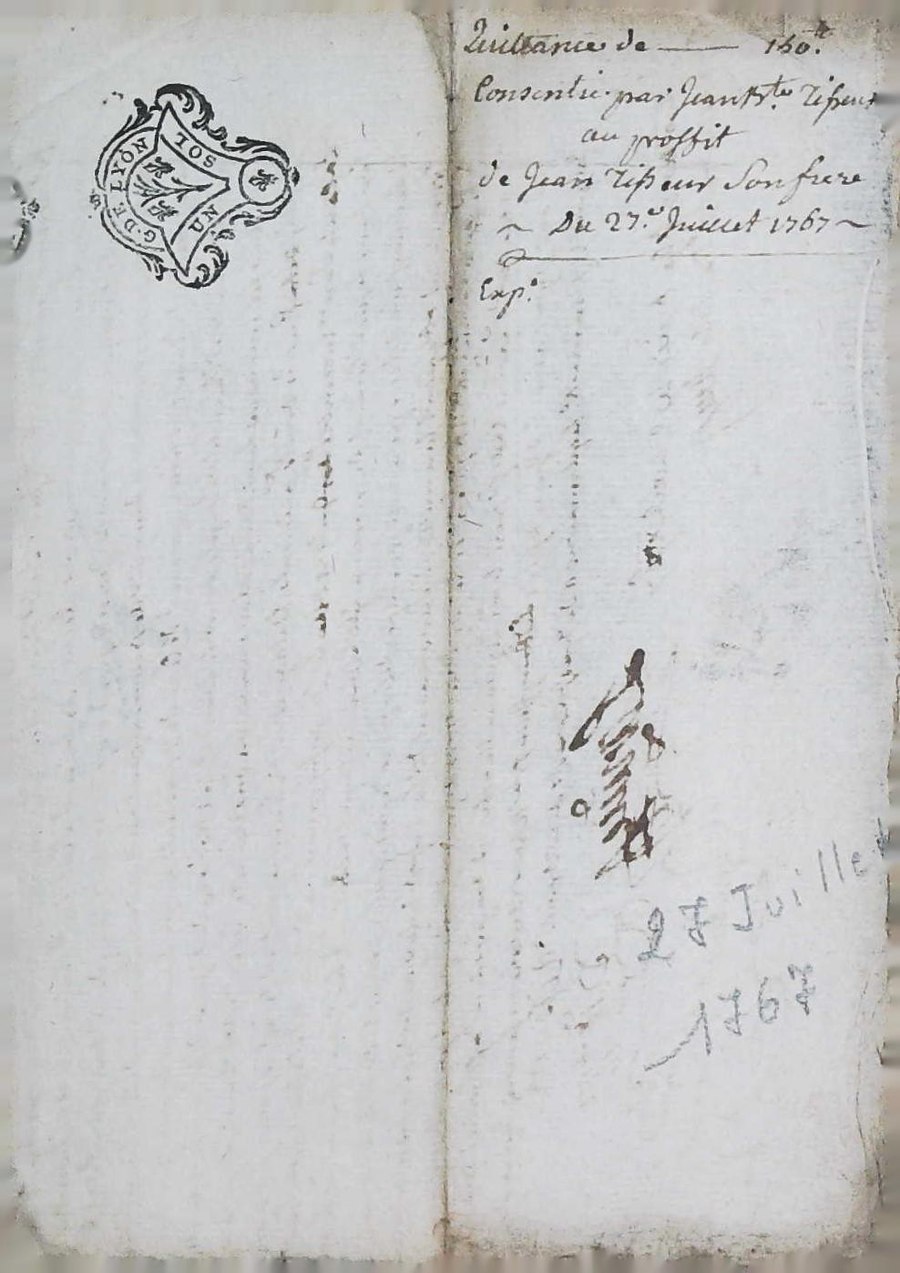 G. DE LYON
UN SOL
Quittance de — 150.ᵗᵗ
Consentie par Jean
au proffit
de Jean Tisseur Son frere
~ Du 27.e Juillet 1767 ~
Exp.e
27 Juillet
1767